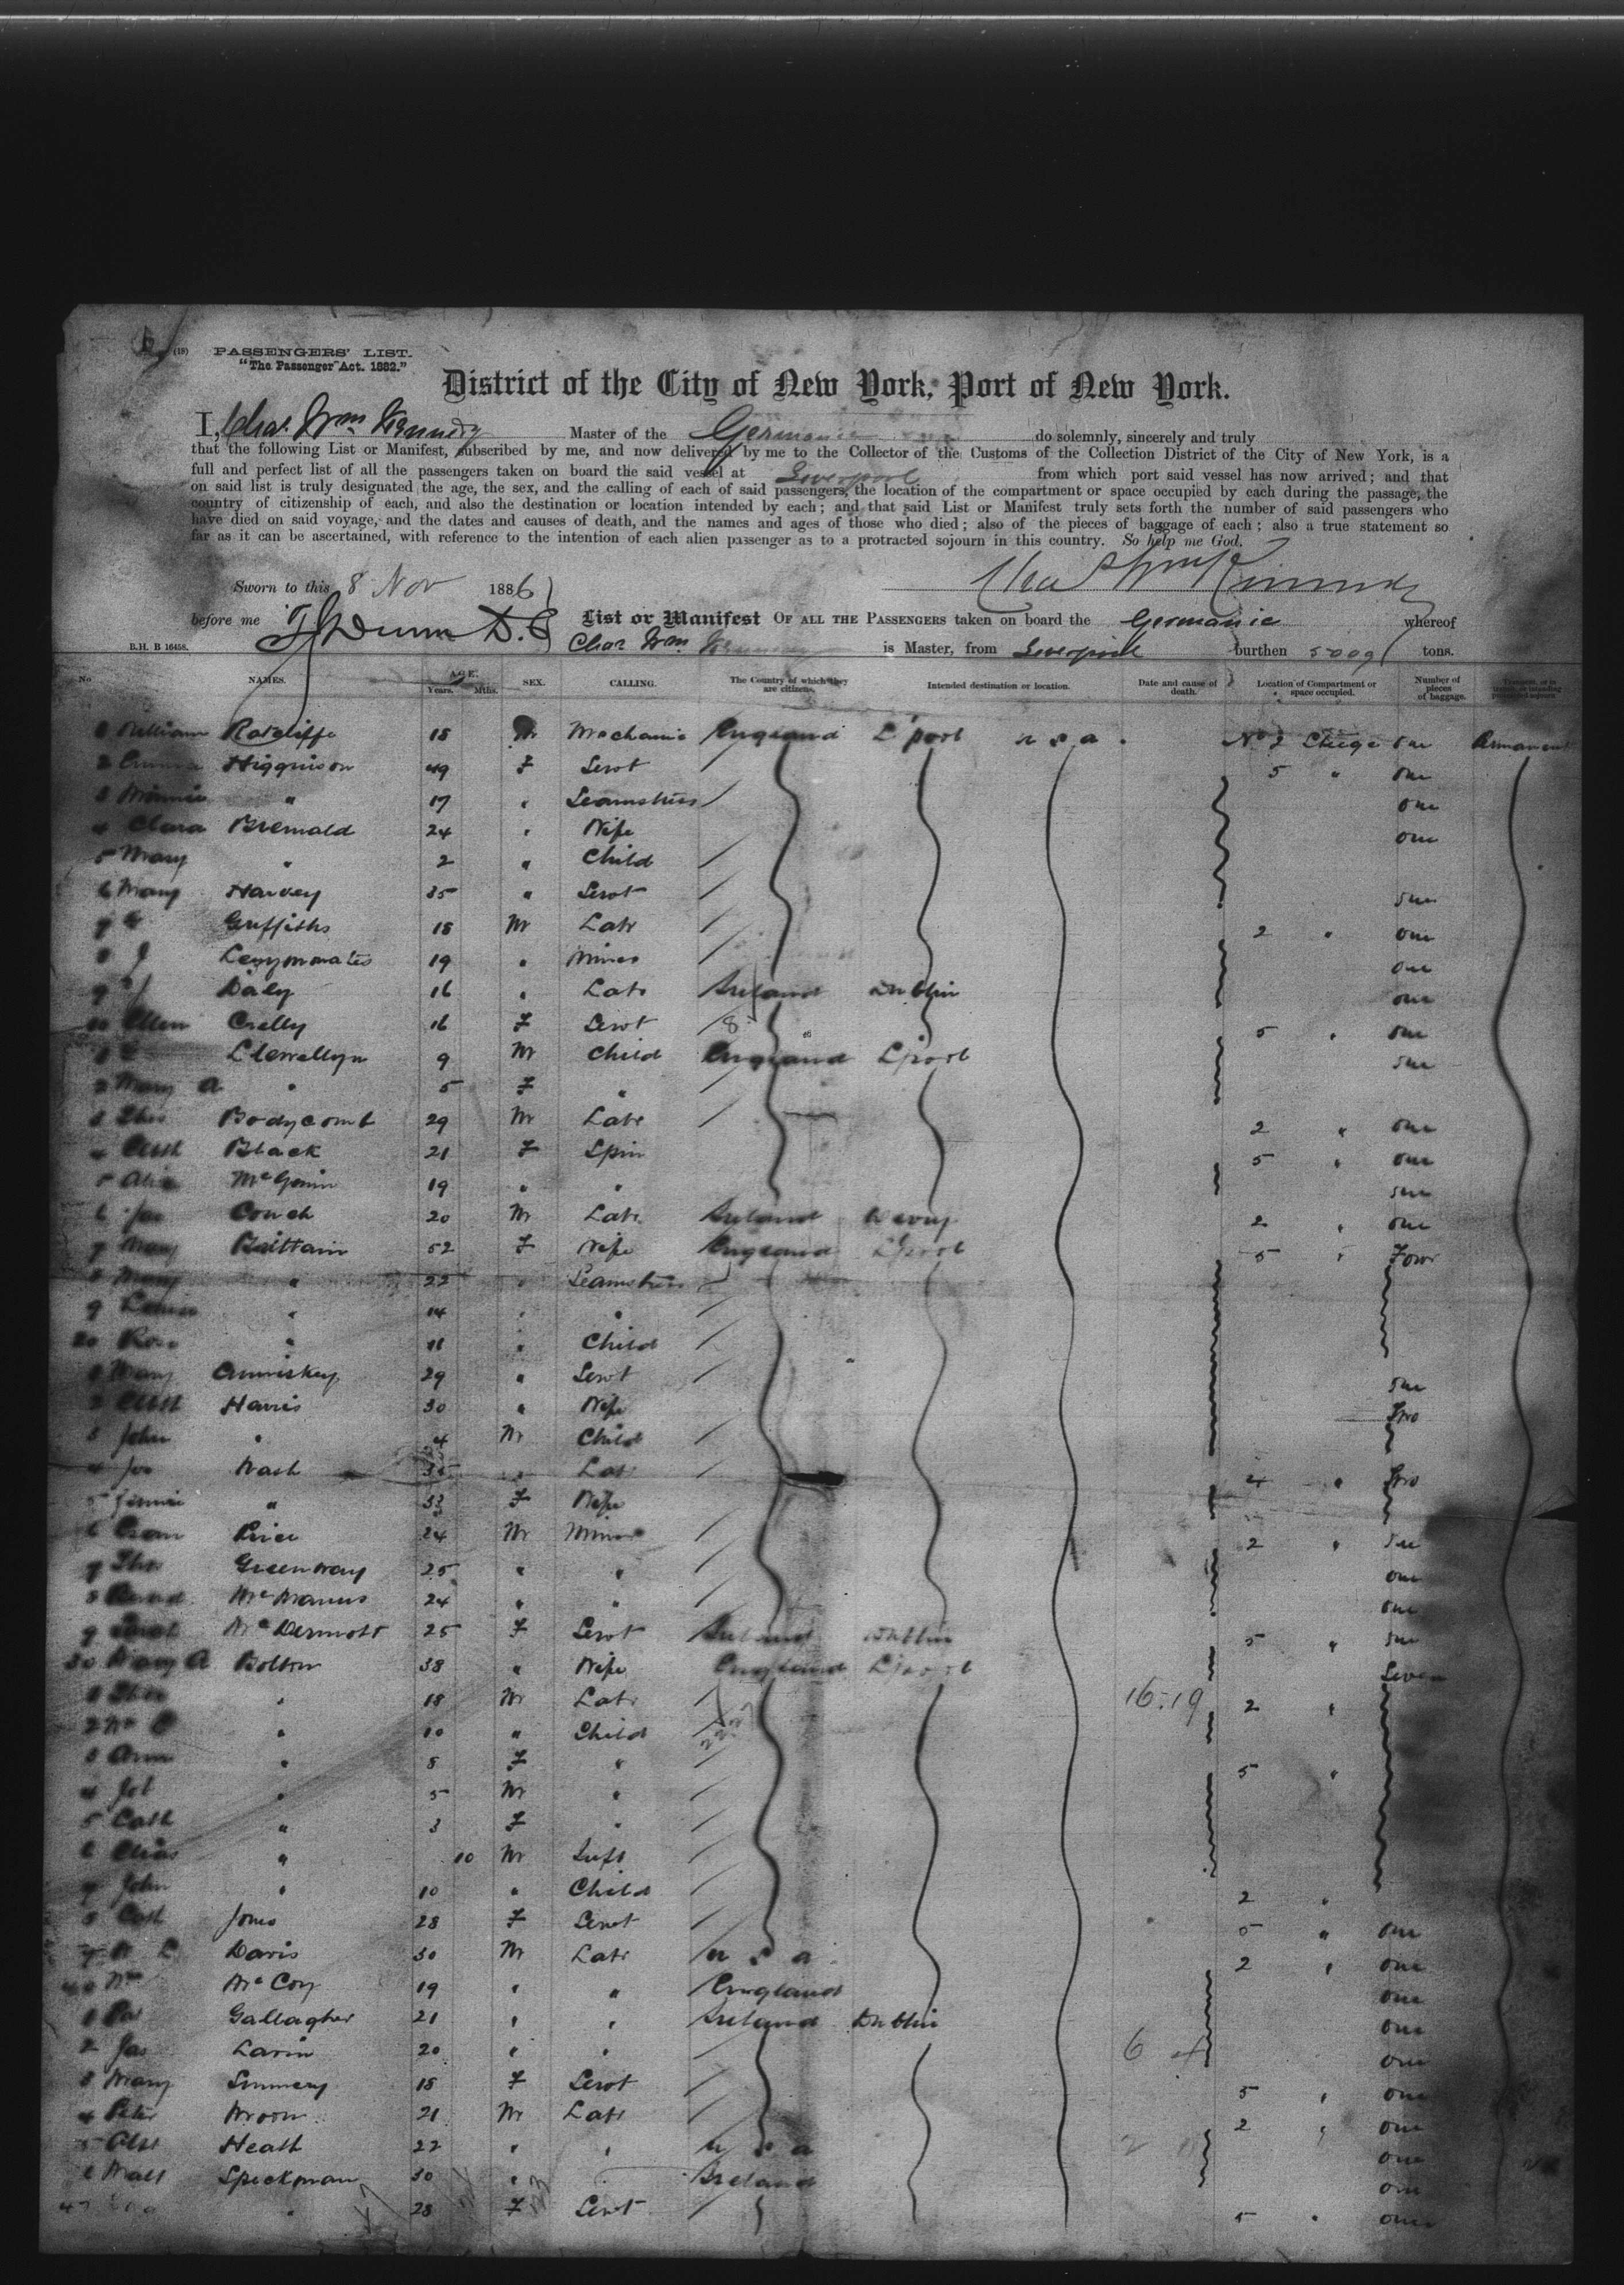 (18) PASSENGERS' LIST.
"The Passenger Act. 1882."
District of the City of New York, Port of New York.
I, Chas. Wm Kennedy Master of the Germanic do solemnly, sincerely and truly
that the following List or Manifest, subscribed by me, and now delivered by me to the Collector of the Customs of the Collection District of the City of New York, is a
full and perfect list of all the passengers taken on board the said vessel at Liverpool from which port said vessel has now arrived; and that
on said list is truly designated the age, the sex, and the calling of each of said passengers, the location of the compartment or space occupied by each during the passage, the
country of citizenship of each, and also the destination or location intended by each; and that said List or Manifest truly sets forth the number of said passengers who
have died on said voyage, and the dates and causes of death, and the names and ages of those who died; also of the pieces of baggage of each; also a true statement so
far as it can be ascertained, with reference to the intention of each alien passenger as to a protracted sojourn in this country. So help me God.
Chas Wm Kennedy
Sworn to this 8 Nov 1886
before me List or Manifest OF ALL THE PASSENGERS taken on board the Germanic whereof
B.H. B 16458. Chas Wm Kennedy is Master, from Liverpool burthen tons.
No NAMES. AGE. Years. Mths. SEX. CALLING. The Country of which they are citizens. Intended destination or location. Date and cause of death. Location of Compartment or space occupied. Number of pieces of baggage.
William Ratcliffe 18 M Mechanic England L'pool U S A No 2 one Permanent
2 Higginson 49 F Servt 5 " one
3 Minnie " 17 " Seamstress one
4 Clara 24 " Wife one
5 Mary " 2 " Child
6 Mary Harvey 35 " Servt one
7 Griffiths 18 M Labr 2 " one
8 J 19 " Miner one
9 J Daly 16 " Labr Ireland Dublin one
10 Ellen Crelly 16 F Servt 5 " one
Llewellyn 9 M Child England L'pool one
2 Mary A " 5 F "
3 Thos Bodycomb 29 M Labr 2 " one
4 Black 21 F Spin 5 " one
5 19 " " one
6 Jas Couch 20 M Labr Ireland Derry 2 " one
7 Mary Brittain 52 F Wife England L'pool 5 " Four
8 Mary " 22 " Seamstress
9 Louisa " 14 " "
20 Rose " 11 " Child
Mary 29 " Servt one
2 Harris 30 " Wife Two
3 John " 4 M Child
4 Jos Nash 35 " Labr 4 " Two
5 " 33 F Wife
6 Price 24 M Miner 2 " one
7 Thos Greenway 25 " " one
8 McManus 24 " " one
9 McDermott 25 F Servt Ireland Dublin 5 " one
30 Mary A Bolton 38 " Wife England L'pool Seven
Thos " 18 M Labr 16.19 2 "
2 Wm " 10 " Child
3 Ann " 8 F " 5 "
4 " 5 M "
5 Cath " 3 F "
6 " 10 M Inft
7 John " 10 " Child 2 "
8 Cath Jones 28 F Servt 5 " one
9 Davis 30 M Labr U S A 2 " one
40 Wm McCoy 19 " " England one
Pat Gallagher 21 " " Ireland Dublin one
2 Jas Larin 20 " " 6 4 one
3 Mary 18 F Servt 5 " one
4 Peter 21 M Labr 2 " one
5 Heath 22 " " U S A one
6 Speckman 30 " Ireland one
47 " 28 F Servt 5 " one